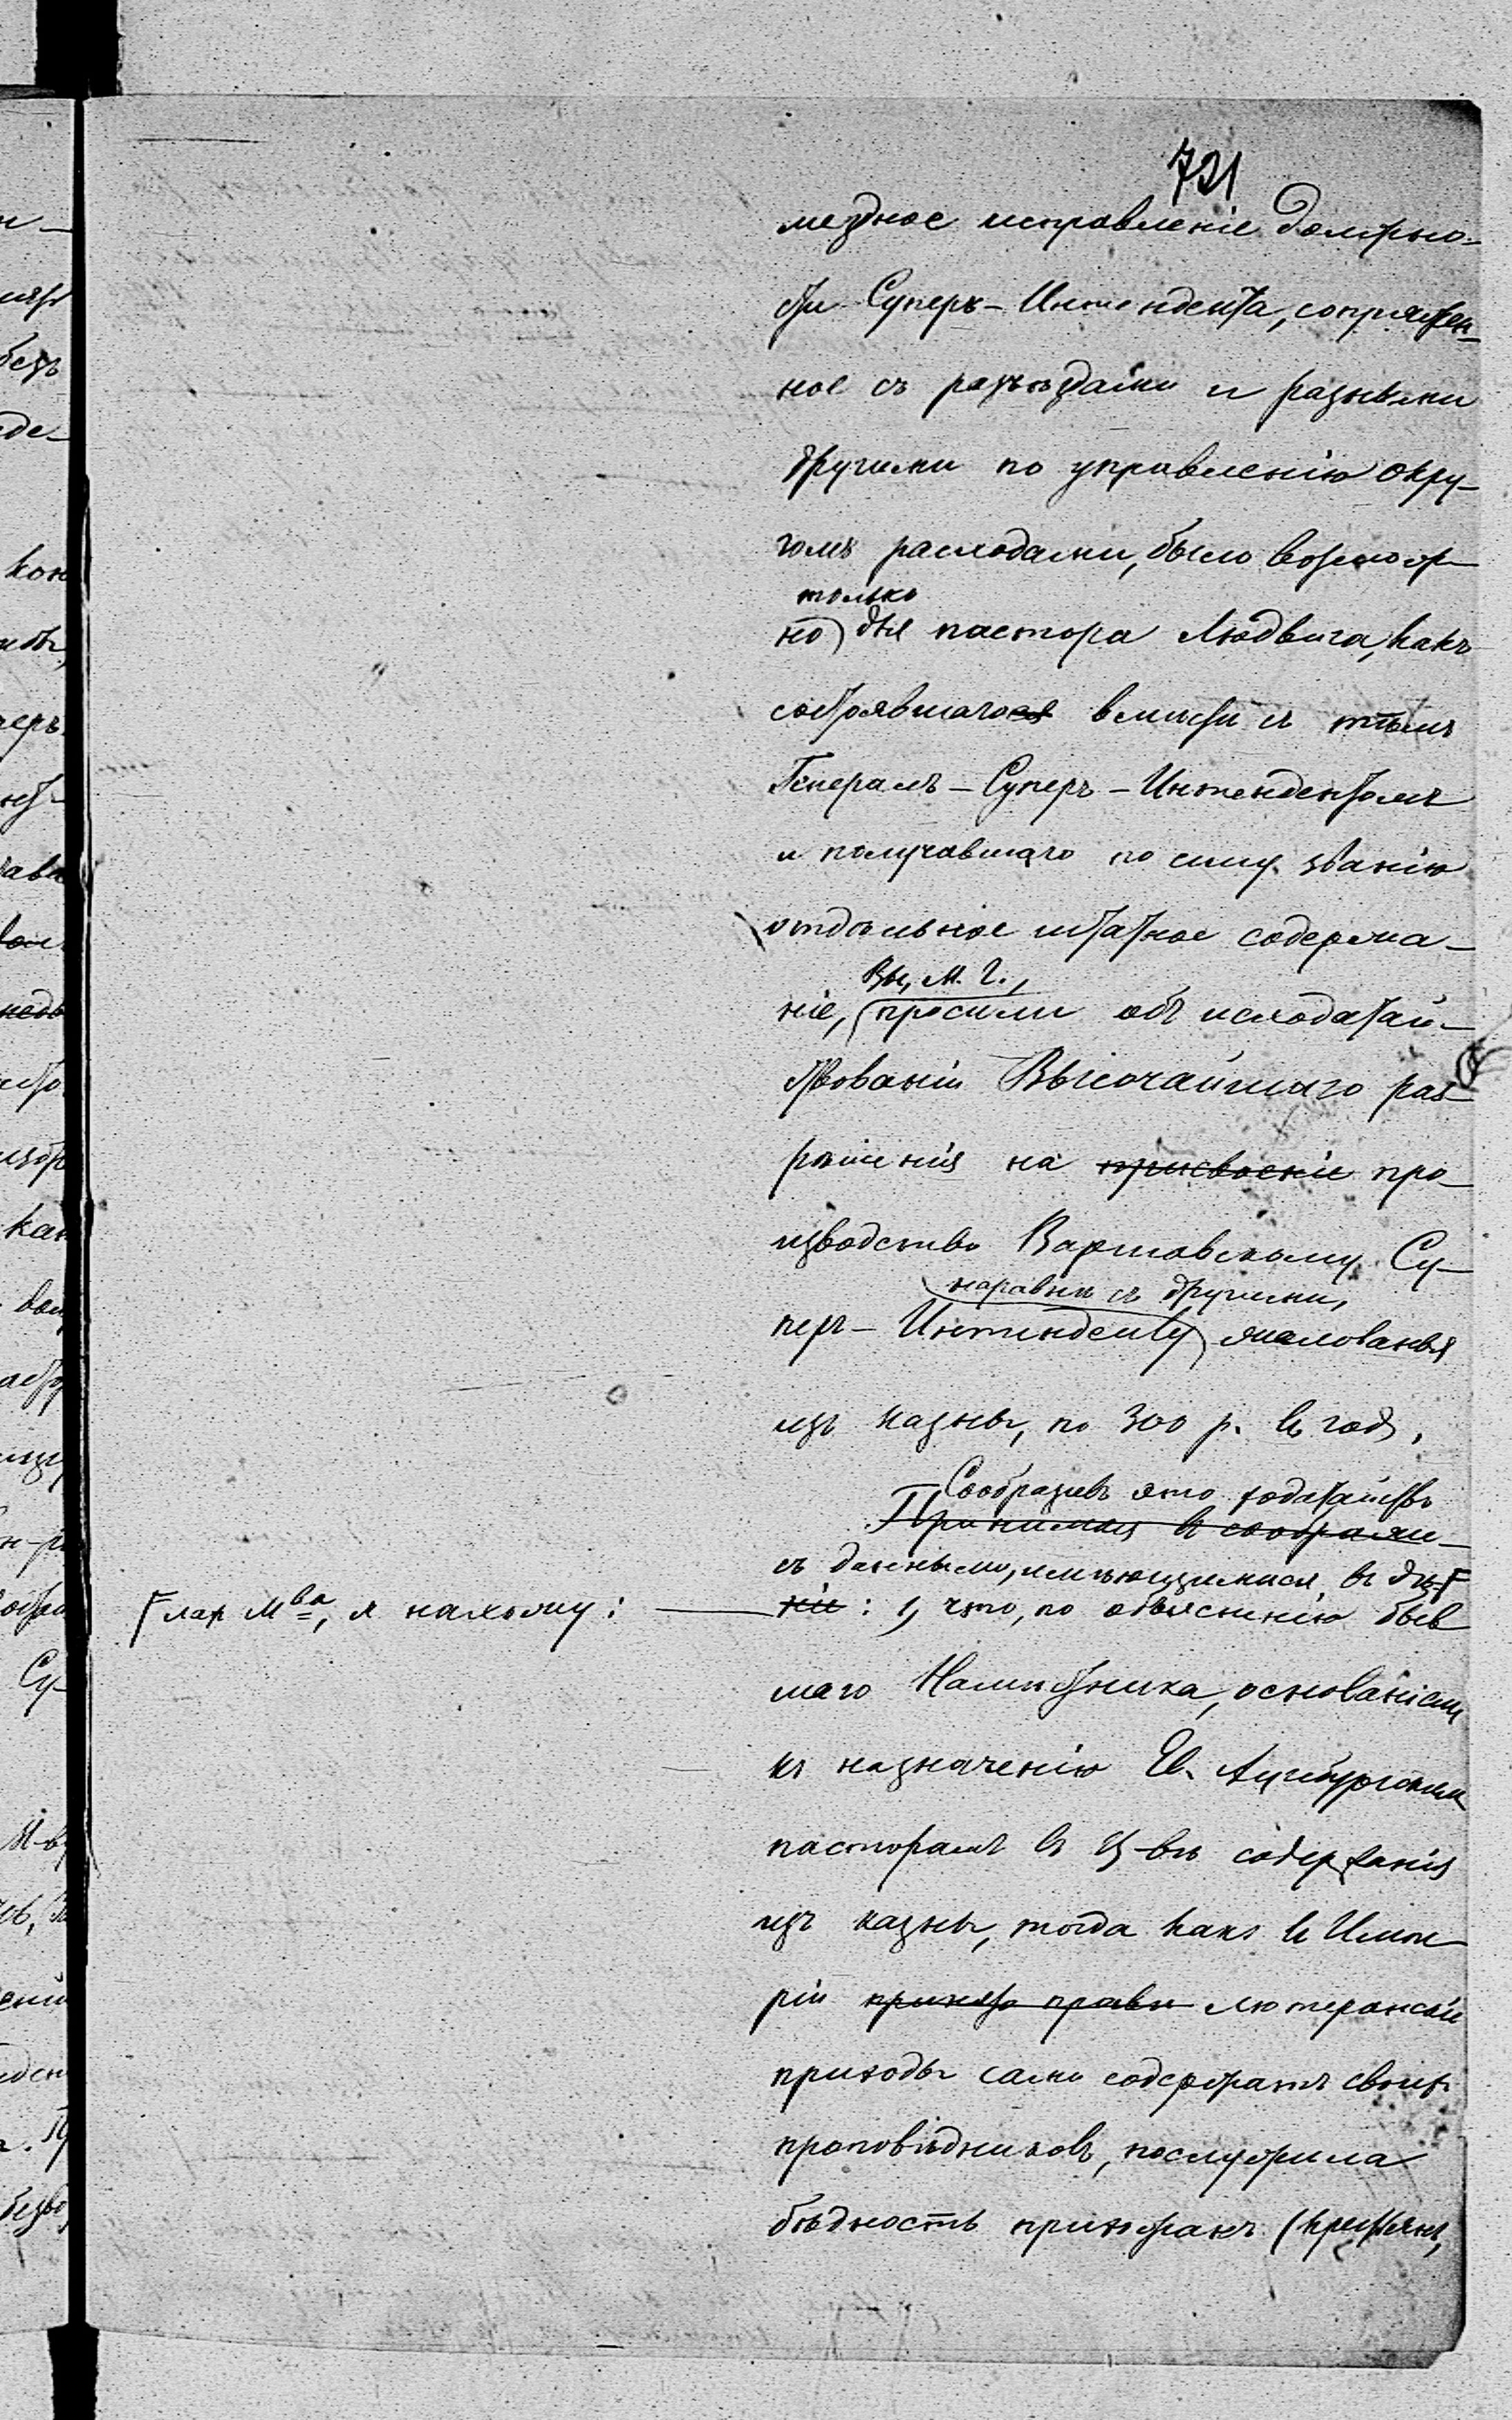 721
мездное исправленіе должно-
сти Суперъ-Интендента, сопряжен-
ное съ разъѣздами и разными
другими по управленію окру-
гомъ расходами, было возмож-
только
но для пастора Людвига, какъ
состоявшагося вмѣстѣ съ тѣмъ
Генералъ-Суперъ-Интендентомъ
и получавшаго по сему званію
отдѣльное штатное содержа-
Вы, М. Г.,
ніе, просили объ исходатай-
ствованіи Высочайшаго раз-
рѣшенія на присвоеніе про-
изводство Варшавскому Су-
наравнѣ съ другими,
перъ-Интенденту жалованья
изъ казны, по 300 р. въ годъ.
Сообразивъ это ходатайство
Принимая въ соображе-
съ данными, имѣющимися въ дѣ-
ніе: 1, что, по объясненію быв
лах М-ва, я нахожу:
шаго Намѣстника, основаніемъ
къ назначенію Ев. Аугсбургскимъ
пасторамъ въ Ц-вѣ содержанія
изъ казны, тогда какъ въ Импе
ріи лютеранскіе
приходы сами содержатъ своихъ
проповѣдниковъ, послужила
бѣдность прихожанъ (крестьянъ,